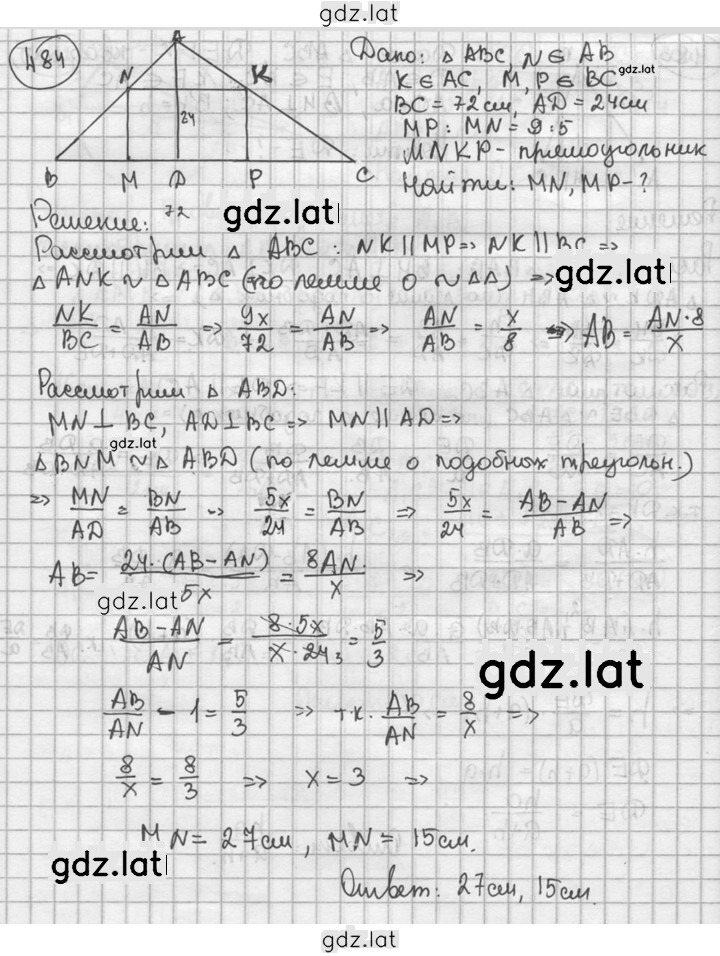 gdz.lat
484
Дано: △ ABC, N ∈ AB
K ∈ AC, M, P ∈ BC
gdz.lat
BC = 72 см, AD = 24 см
MP : MN = 9:5
MNKP - прямоугольник
Найти: MN, MP-?
A
N K
24
B M D P C
72
Решение:
gdz.lat
Рассмотрим △ ABC : NK || MP => NK || BC =>
△ ANK ~ △ ABC (по лемме о ~ △△) =>
gdz.lat
NK/BC = AN/AB => 9x/72 = AN/AB => AN/AB = x/8 => AB = AN·8/x
Рассмотрим △ ABD:
MN ⊥ BC, AD ⊥ BC => MN || AD =>
gdz.lat
△ BNM ~ △ ABD (по лемме о подобных треугольн.)
=> MN/AD = BN/AB => 5x/24 = BN/AB => 5x/24 = AB-AN/AB =>
AB = 24·(AB-AN)/5x = 8AN/x =>
gdz.lat
AB-AN/AN = 8·5x/x·24 3 = 5/3
gdz.lat
AB/AN - 1 = 5/3 => т.к. AB/AN = 8/x =>
8/x = 8/3 => x = 3 =>
MN = 27 см, MN = 15 см.
gdz.lat
Ответ: 27 см, 15 см.
gdz.lat